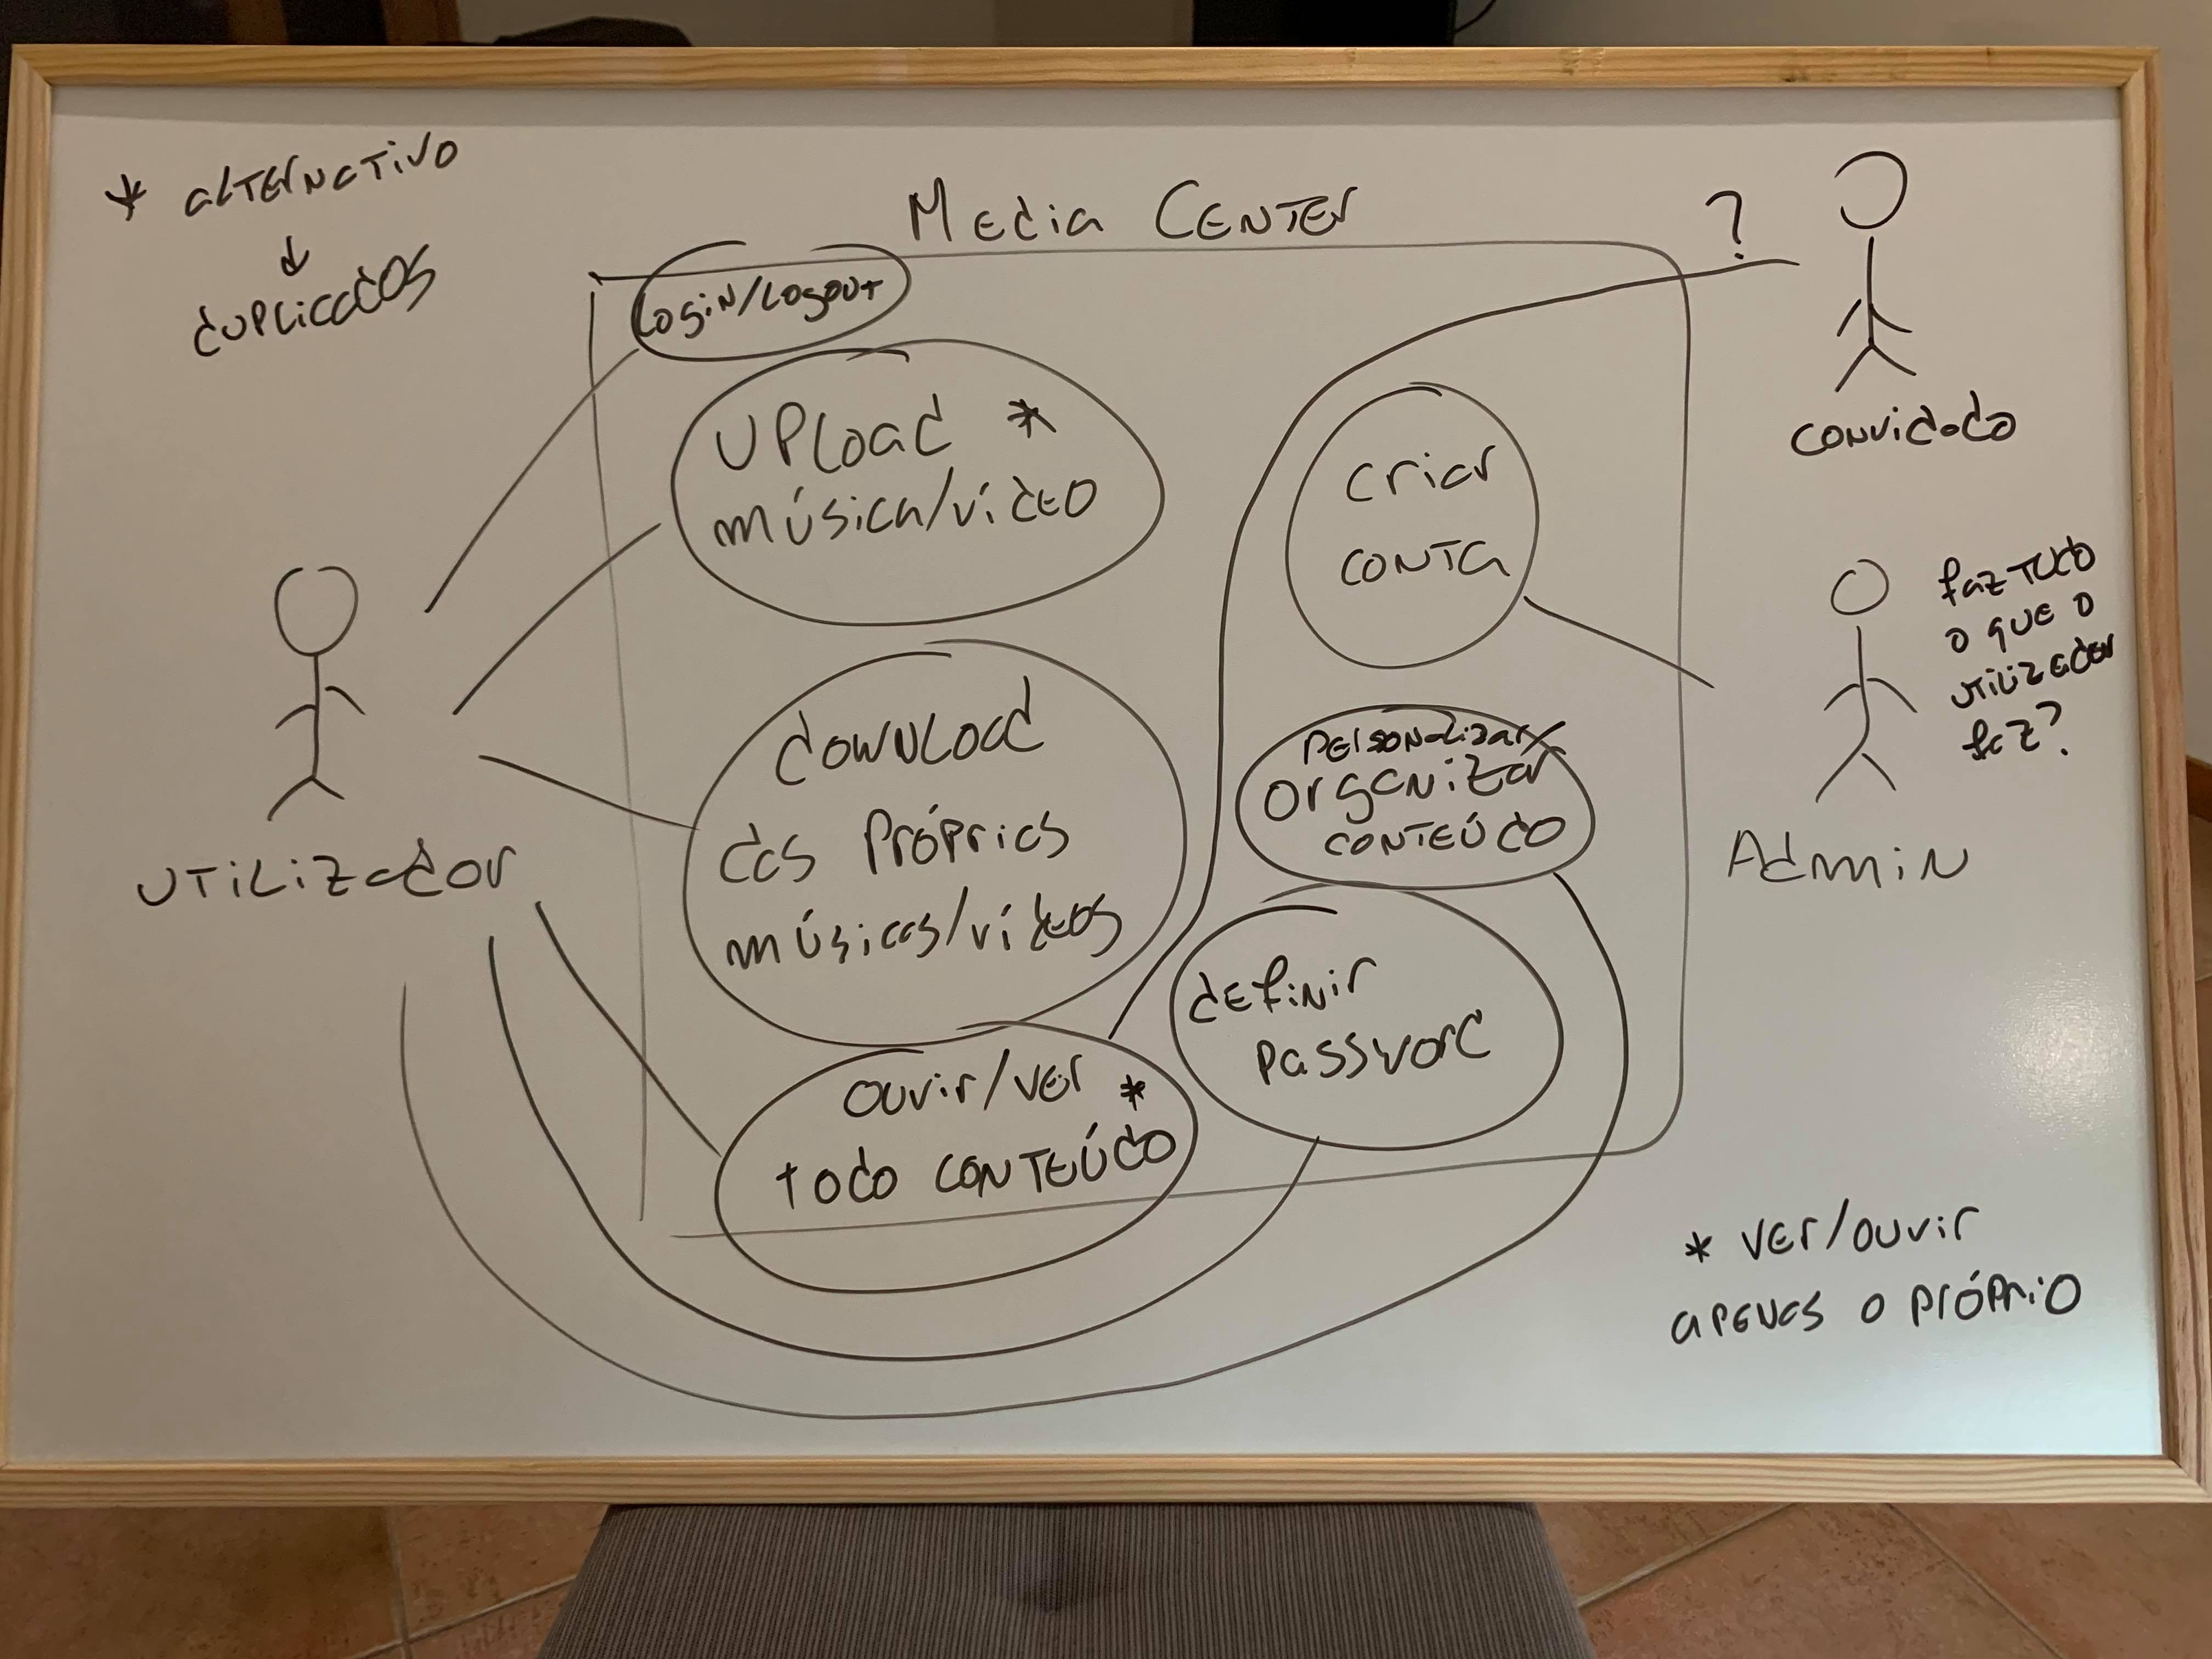 * alternativo
duplicados
Media Center
?
Login/Logout
Upload *
música/vídeo
download
das próprias
músicas/vídeos
ouvir/ver *
todo conteúdo
criar
conta
personalizar
organizar
conteúdo
definir
password
Utilizador
convidado
faz tudo
o que o
utilizador
faz?
Admin
* ver/ouvir
apenas o próprio